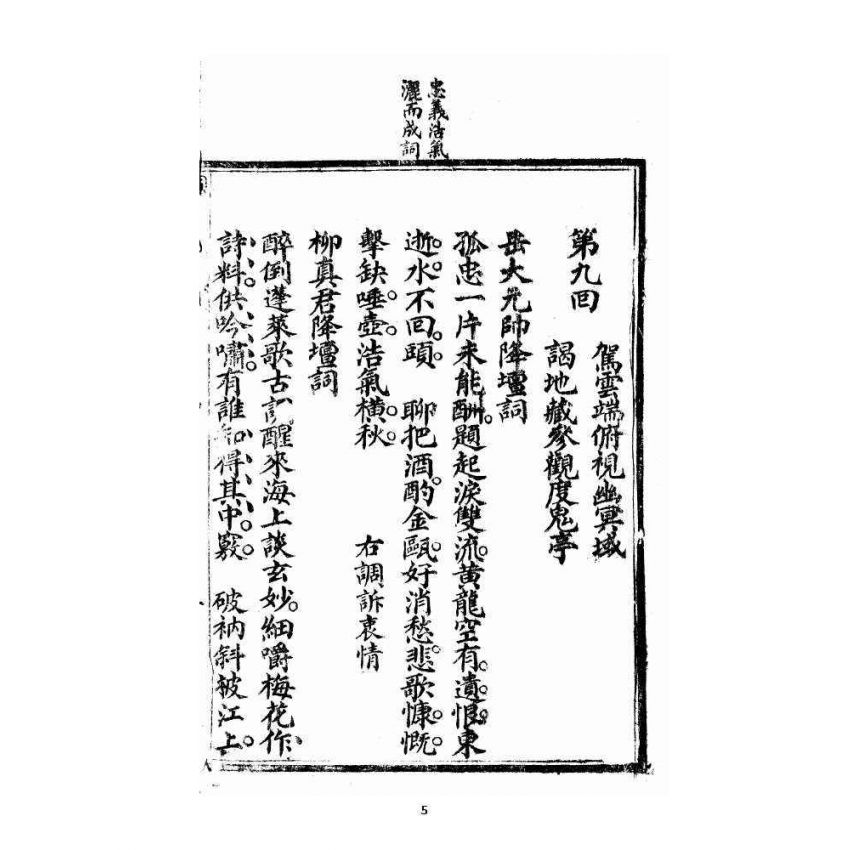 忠義浩氣
灑而成詞
第九回
駕雲端俯視幽冥域
謁地藏參觀度鬼亭
岳大元帥降壇詞
孤忠一片未能酬。題起淚雙流。黃龍空有。遺。恨。東
逝。水。不回。頭。 聊把酒。酌金甌。好消愁。悲。歌慷。慨。
擊缺。唾。壺。浩氣橫。秋。 右調訴衷情
柳真君降壇詞
醉倒蓬萊歌古 醒來海上談玄妙。細嚼梅花作
詩料供吟嘯。有誰 得其中竅。 破衲斜被江上。
5